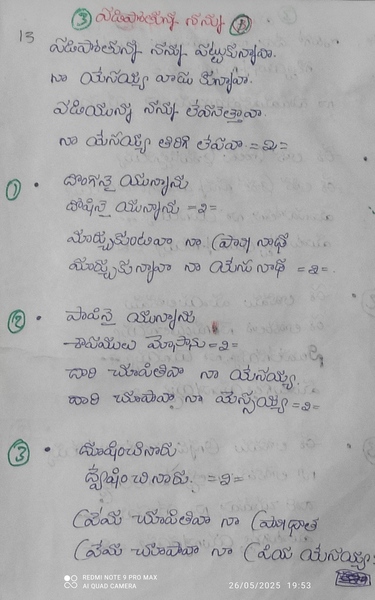 ③ పడిపోతున్న నన్ను
13
పడిపోతున్న నన్ను పట్టుకున్నావా
నా యేసయ్య వాడు కున్నావా
పడియున్న నన్ను లేవనెత్తావా
నా యేసయ్య తిరిగి లేపవా =2=
① దొంగనై యున్నాను
దోషినై యున్నాను =2=
మార్చుకుంటివా నా ప్రాణ నాథ
మార్చుకున్నావా నా యేసు నాథ =2=
② పాపినై యున్నాను
శాపములు మోసాను =2=
దారి చూపితివా నా యేసయ్య
దారి చూపావా నా యేస్సయ్య =2=
③ దూషించినారు
ద్వేషించినారు =2=
ప్రేమ చూపితివా నా ప్రాణదాత
ప్రేమ చూపావా నా ప్రియ యేసయ్య
REDMI NOTE 9 PRO MAX
AI QUAD CAMERA
26/05/2025 19:53